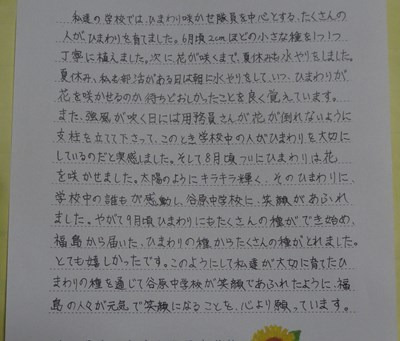 私達の学校では、ひまわり咲かせ隊員を中心とする、たくさんの
人がひまわりを育てました。6月頃2cmほどの小さな種を1つ1つ
丁寧に植えました。次に花が咲くまで、夏休みも水やりをしました。
夏休み、私も部活がある日は朝に水やりをして、いつ、ひまわりが
花を咲かせるのか待ちどおしかったことを良く覚えています。
また、強風が吹く日には用務員さんが花が倒れないように
支柱を立てて下さって、このとき学校中の人がひまわりを大切に
しているのだと実感しました。そして8月頃ついにひまわりは花
を咲かせました。太陽のようにキラキラ輝く、そのひまわりに、
学校中の誰もが感動し、谷原中学校に、笑顔があふれ
ました。やがて9月頃ひまわりにもたくさんの種ができ始め、
福島から届いた、ひまわりの種からたくさんの種がとれました。
とても嬉しかったです。このようにして私達が大切に育てたひ
まわりの種を通じて谷原中学校が笑顔であふれたように、福
島の人々が元気で笑顔になることを、心より願っています。